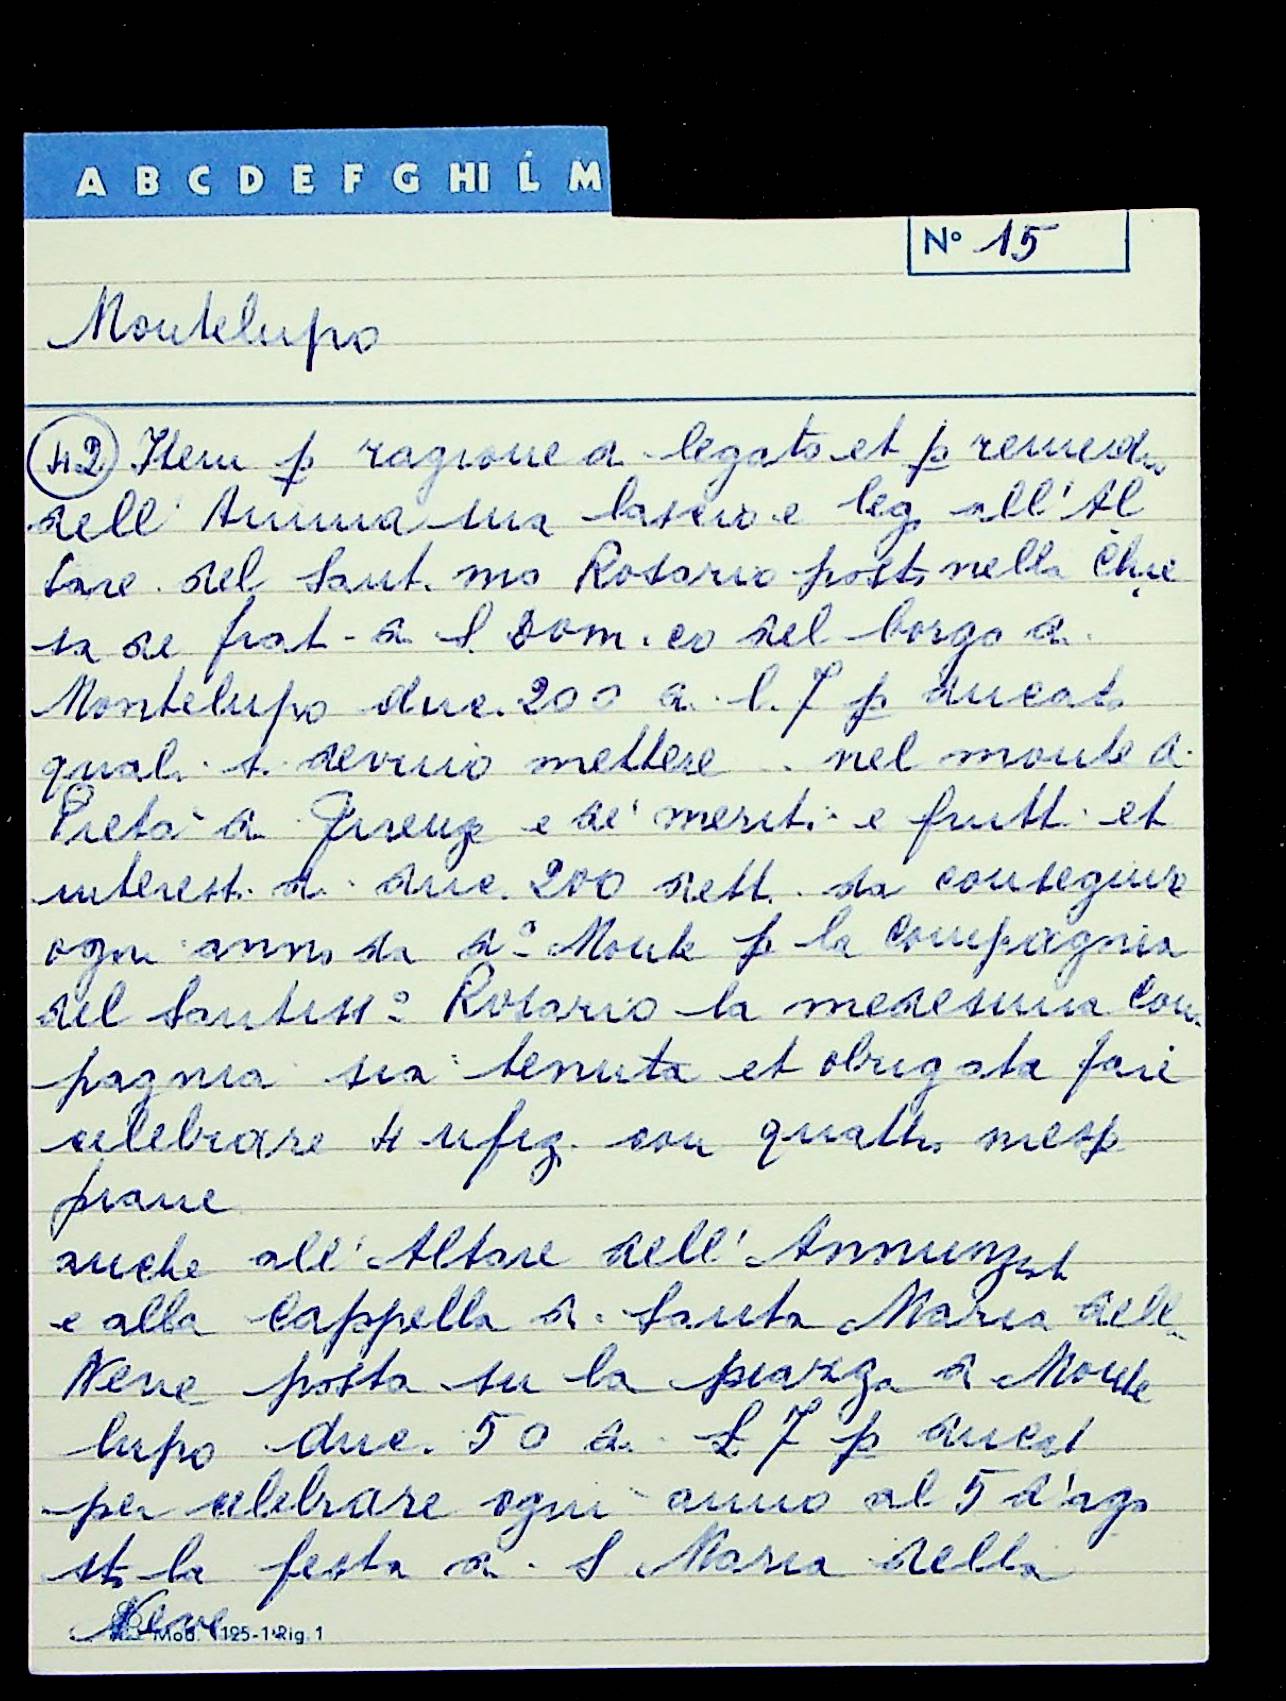 A B C D E F G HI L M
N° 15
Montelupo
42 Item p ragione di legato et p remedio
dell' Anima sua lascio e leg all' Al
tare del Sant.mo Rosario posto nella Chie
sa de frat di S. Dom.co del borgo di
Montelupo duc. 200 di l. 7 p ducato
quali si devino mettere nel monte di
Pietà di Firenze e de' meriti e frutti et
interesi di duc. 200 dett. da conseguire
ogni anno da d° Monte p la Compagnia
del Santiss° Rosario la medesima Com
pagnia sia tenuta et obrigata fare
celebrare 4 ufiz. con quattro messe
piane
anche all' Altare dell' Annunziat
e alla Cappella di Santa Maria delle
Neve posta su la piazza di Monte
lupo duc. 50 di £ 7 p ducat
per celebrare ogni anno al 5 d'ago
sto la festa di S Maria della
Neve
Mod. 125-1 Rig. 1